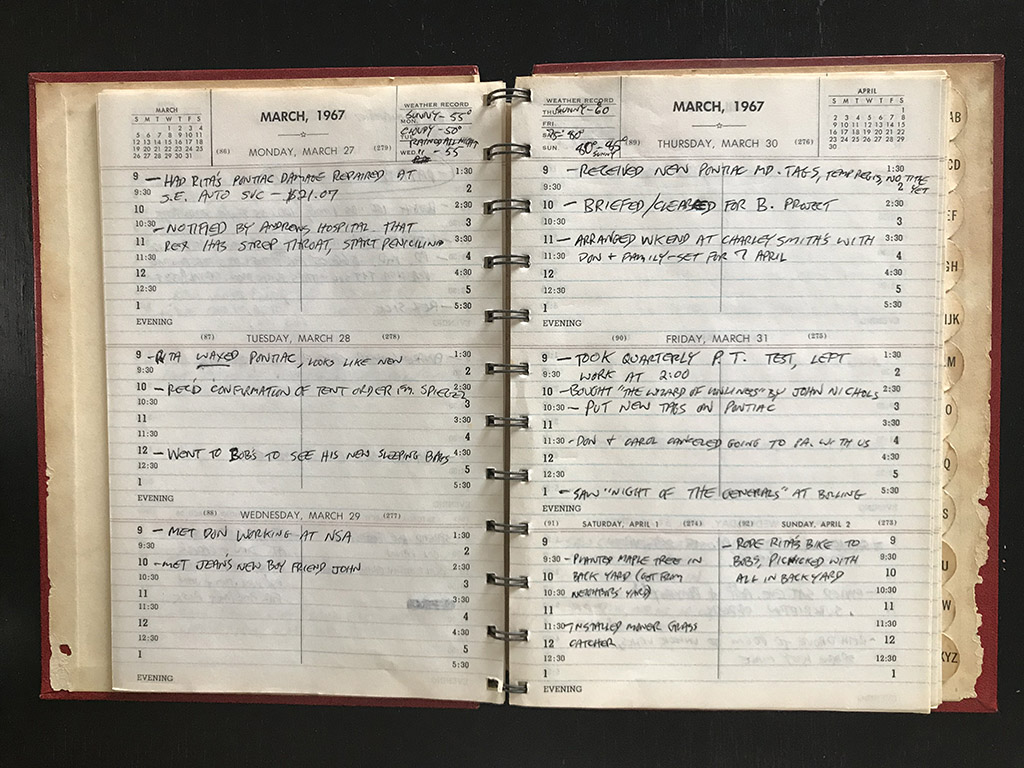 MARCH
S M T W T F S
1 2 3 4
5 6 7 8 9 10 11
12 13 14 15 16 17 18
19 20 21 22 23 24 25
26 27 28 29 30 31
MARCH, 1967
WEATHER RECORD
SUNNY - 55°
MON.
CLOUDY - 50°
TUE.
RAINED ALL NIGHT
WED. " - 55
(86) MONDAY, MARCH 27 (279)
9 - HAD RITA'S PONTIAC DAMAGE REPAIRED AT 1:30
9:30 S.E. AUTO SVC - $21.07 2
10 2:30
10:30 - NOTIFIED BY ANDREWS HOSPITAL THAT 3
11 REX HAS STREP THROAT, START PENICILIND 3:30
11:30 4
12 4:30
12:30 5
1 5:30
EVENING
(87) TUESDAY, MARCH 28 (278)
9 - RITA WAXED PONTIAC, LOOKS LIKE NEW 1:30
9:30 2
10 - REC'D CONFIRMATION OF TENT ORDER FM. 2:30
10:30 3
11 3:30
11:30 4
12 - WENT TO BOB'S TO SEE HIS NEW SLEEPING BAGS 4:30
12:30 5
1 5:30
EVENING
(88) WEDNESDAY, MARCH 29 (277)
9 - MET DON WORKING AT NSA 1:30
9:30 2
10 - MET JEAN'S NEW BOY FRIEND JOHN 2:30
10:30 3
11
11:30 4
12 4:30
12:30 5
1 5:30
EVENING
WEATHER RECORD
THU. SUNNY - 60
FRI.
SAT. 75° 80°
SUN. 80° - 85°
SUNNY
MARCH, 1967
APRIL
S M T W T F S
1
2 3 4 5 6 7 8
9 10 11 12 13 14 15
16 17 18 19 20 21 22
23 24 25 26 27 28 29
30
(89) THURSDAY, MARCH 30 (276)
9 - RECEIVED NEW PONTIAC MD. TAGS, TEMP REGIS, NO TITLE 1:30
9:30 YET 2
10 - BRIEFED/CLEARED FOR B. PROJECT 2:30
10:30 3
11 - ARRANGED WKEND AT CHARLEY SMITH'S WITH 3:30
11:30 DON + FAMILY - SET FOR 7 APRIL 4
12 4:30
12:30 5
1 5:30
EVENING
(90) FRIDAY, MARCH 31 (275)
9 - TOOK QUARTERLY P.T. TEST, LEFT 1:30
9:30 WORK AT 2:00 2
10 - BOUGHT "THE WIZARD OF LONLINESS" BY JOHN NICHOLS 2:30
10:30 - PUT NEW TAGS ON PONTIAC 3
11 3:30
11:30 - DON + CAROL CANCELED GOING TO PA. WITH US 4
12 4:30
12:30 5
1 - SAW "NIGHT OF THE GENERALS" AT BOLLING 5:30
EVENING
(91) SATURDAY, APRIL 1 (274)
9
9:30 - PLANTED MAPLE TREE IN
10 BACK YARD (GOT FROM
10:30 NEIGHBORS YARD)
11
11:30 - INSTALLED MOWER GRASS
12 CATCHER
12:30
1
EVENING
(92) SUNDAY, APRIL 2 (273)
- RODE RITA'S BIKE TO 9
BOB'S, PICNICKED WITH 9:30
ALL IN BACKYARD 10
10:30
11
11:30
12
12:30
1
AB
CD
EF
GH
IJK
LM
O
Q
S
U
W
XYZ